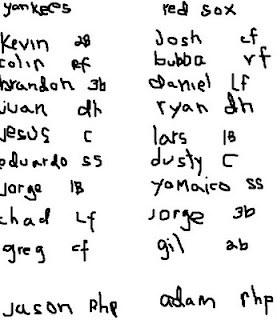 yankees red sox
Kevin 2B Josh cf
colin rf bubba rf
brandon 3b daniel Lf
juan dh ryan dh
Jesus C lars 1B
eduardo SS dusty C
Jorge 1B yamaico SS
chad Lf Jorge 3b
greg cf gil 2b
Jason Rhp adam rhp